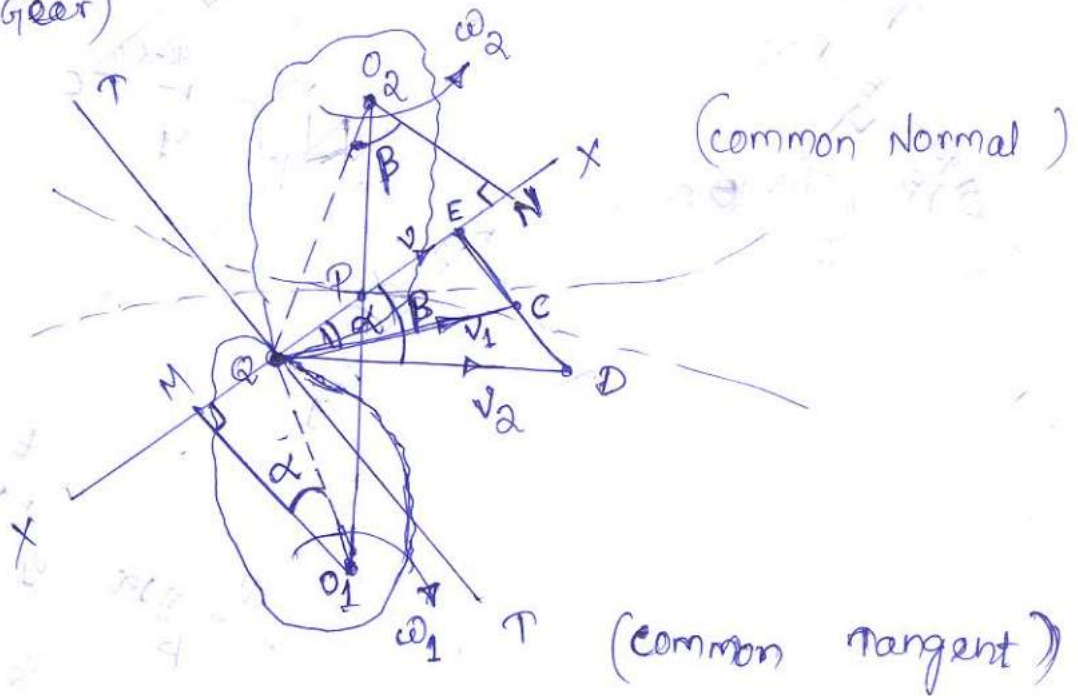 Gear)
ω2
O2
T
(common Normal)
β
X
E
N
v
P
C
α
β
v1
Q
D
M
v2
α
X
O1
ω1
T
(common Tangent)